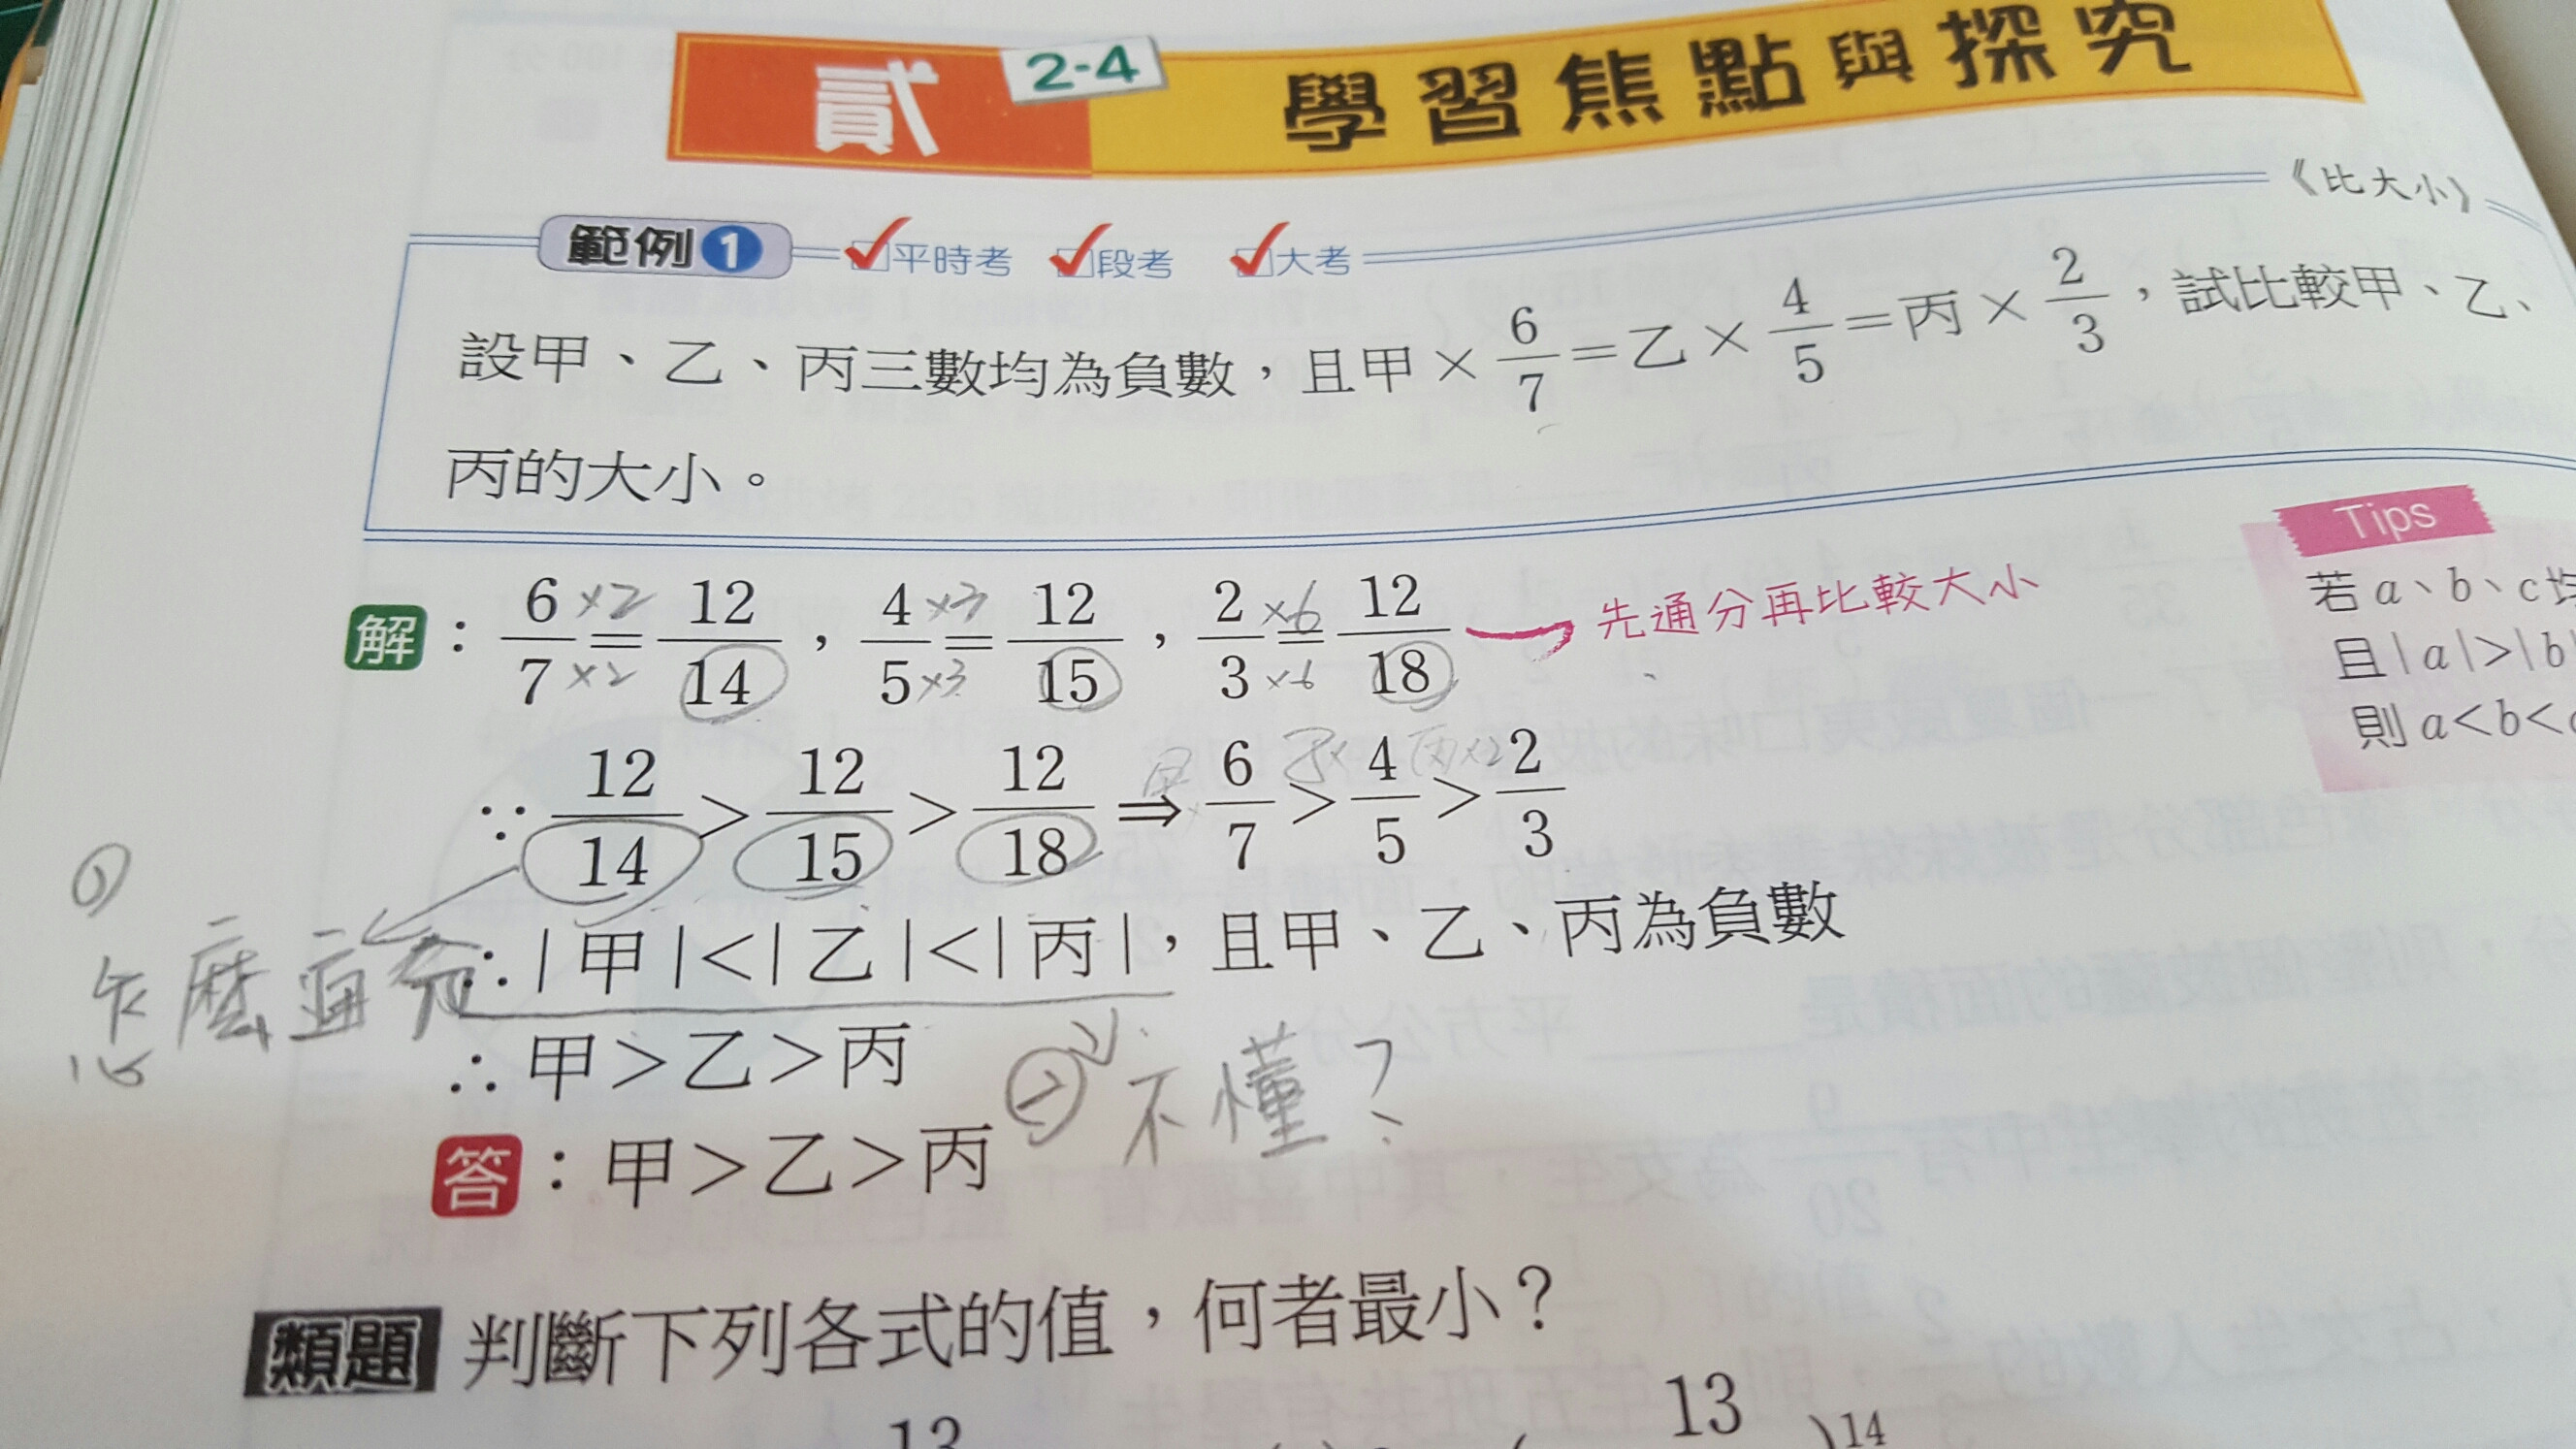 貳 2-4 學習焦點與探究
《比大小》
範例1 平時考 段考 大考
設甲、乙、丙三數均為負數，且甲×6/7=乙×4/5=丙×2/3，試比較甲、乙、
丙的大小。
Tips
若a、b、c均
且|a|>|b|
則a<b<c
解：6/7 ×2 ×2 = 12/14，4/5 ×3 ×3 = 12/15，2/3 ×6 ×6 = 12/18 先通分再比較大小
∵12/14>12/15>12/18⇒6/7>4/5>2/3
甲× 乙× 丙×
∴|甲|<|乙|<|丙|，且甲、乙、丙為負數
①
怎麼通分
∴甲>乙>丙
② 不懂？
答：甲>乙>丙
類題 判斷下列各式的值，何者最小？
13
13
)14